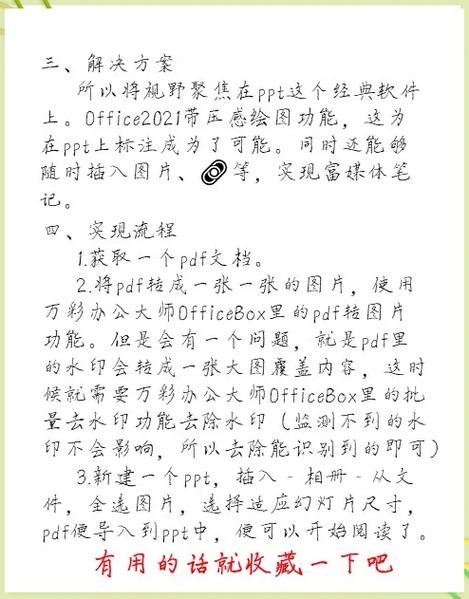 三、解决方案
所以将视野聚焦在ppt这个经典软件
上。Office2021带压感绘图功能，这为
在ppt上标注成为了可能。同时还能够
随时插入图片、等，实现富媒体笔
记。
四、实现流程
1.获取一个pdf文档。
2.将pdf转成一张一张的图片，使用
万彩办公大师OfficeBox里的pdf转图片
功能。但是会有一个问题，就是pdf里
的水印会转成一张大图覆盖内容，这时
候就需要万彩办公大师OfficeBox里的批
量去水印功能去除水印（监测不到的水
印不会影响，所以去除能识别到的即可）
3.新建一个ppt，插入-相册-从文
件，全选图片，选择适应幻灯片尺寸，
pdf便导入到ppt中，便可以开始阅读了。
有用的话就收藏一下吧